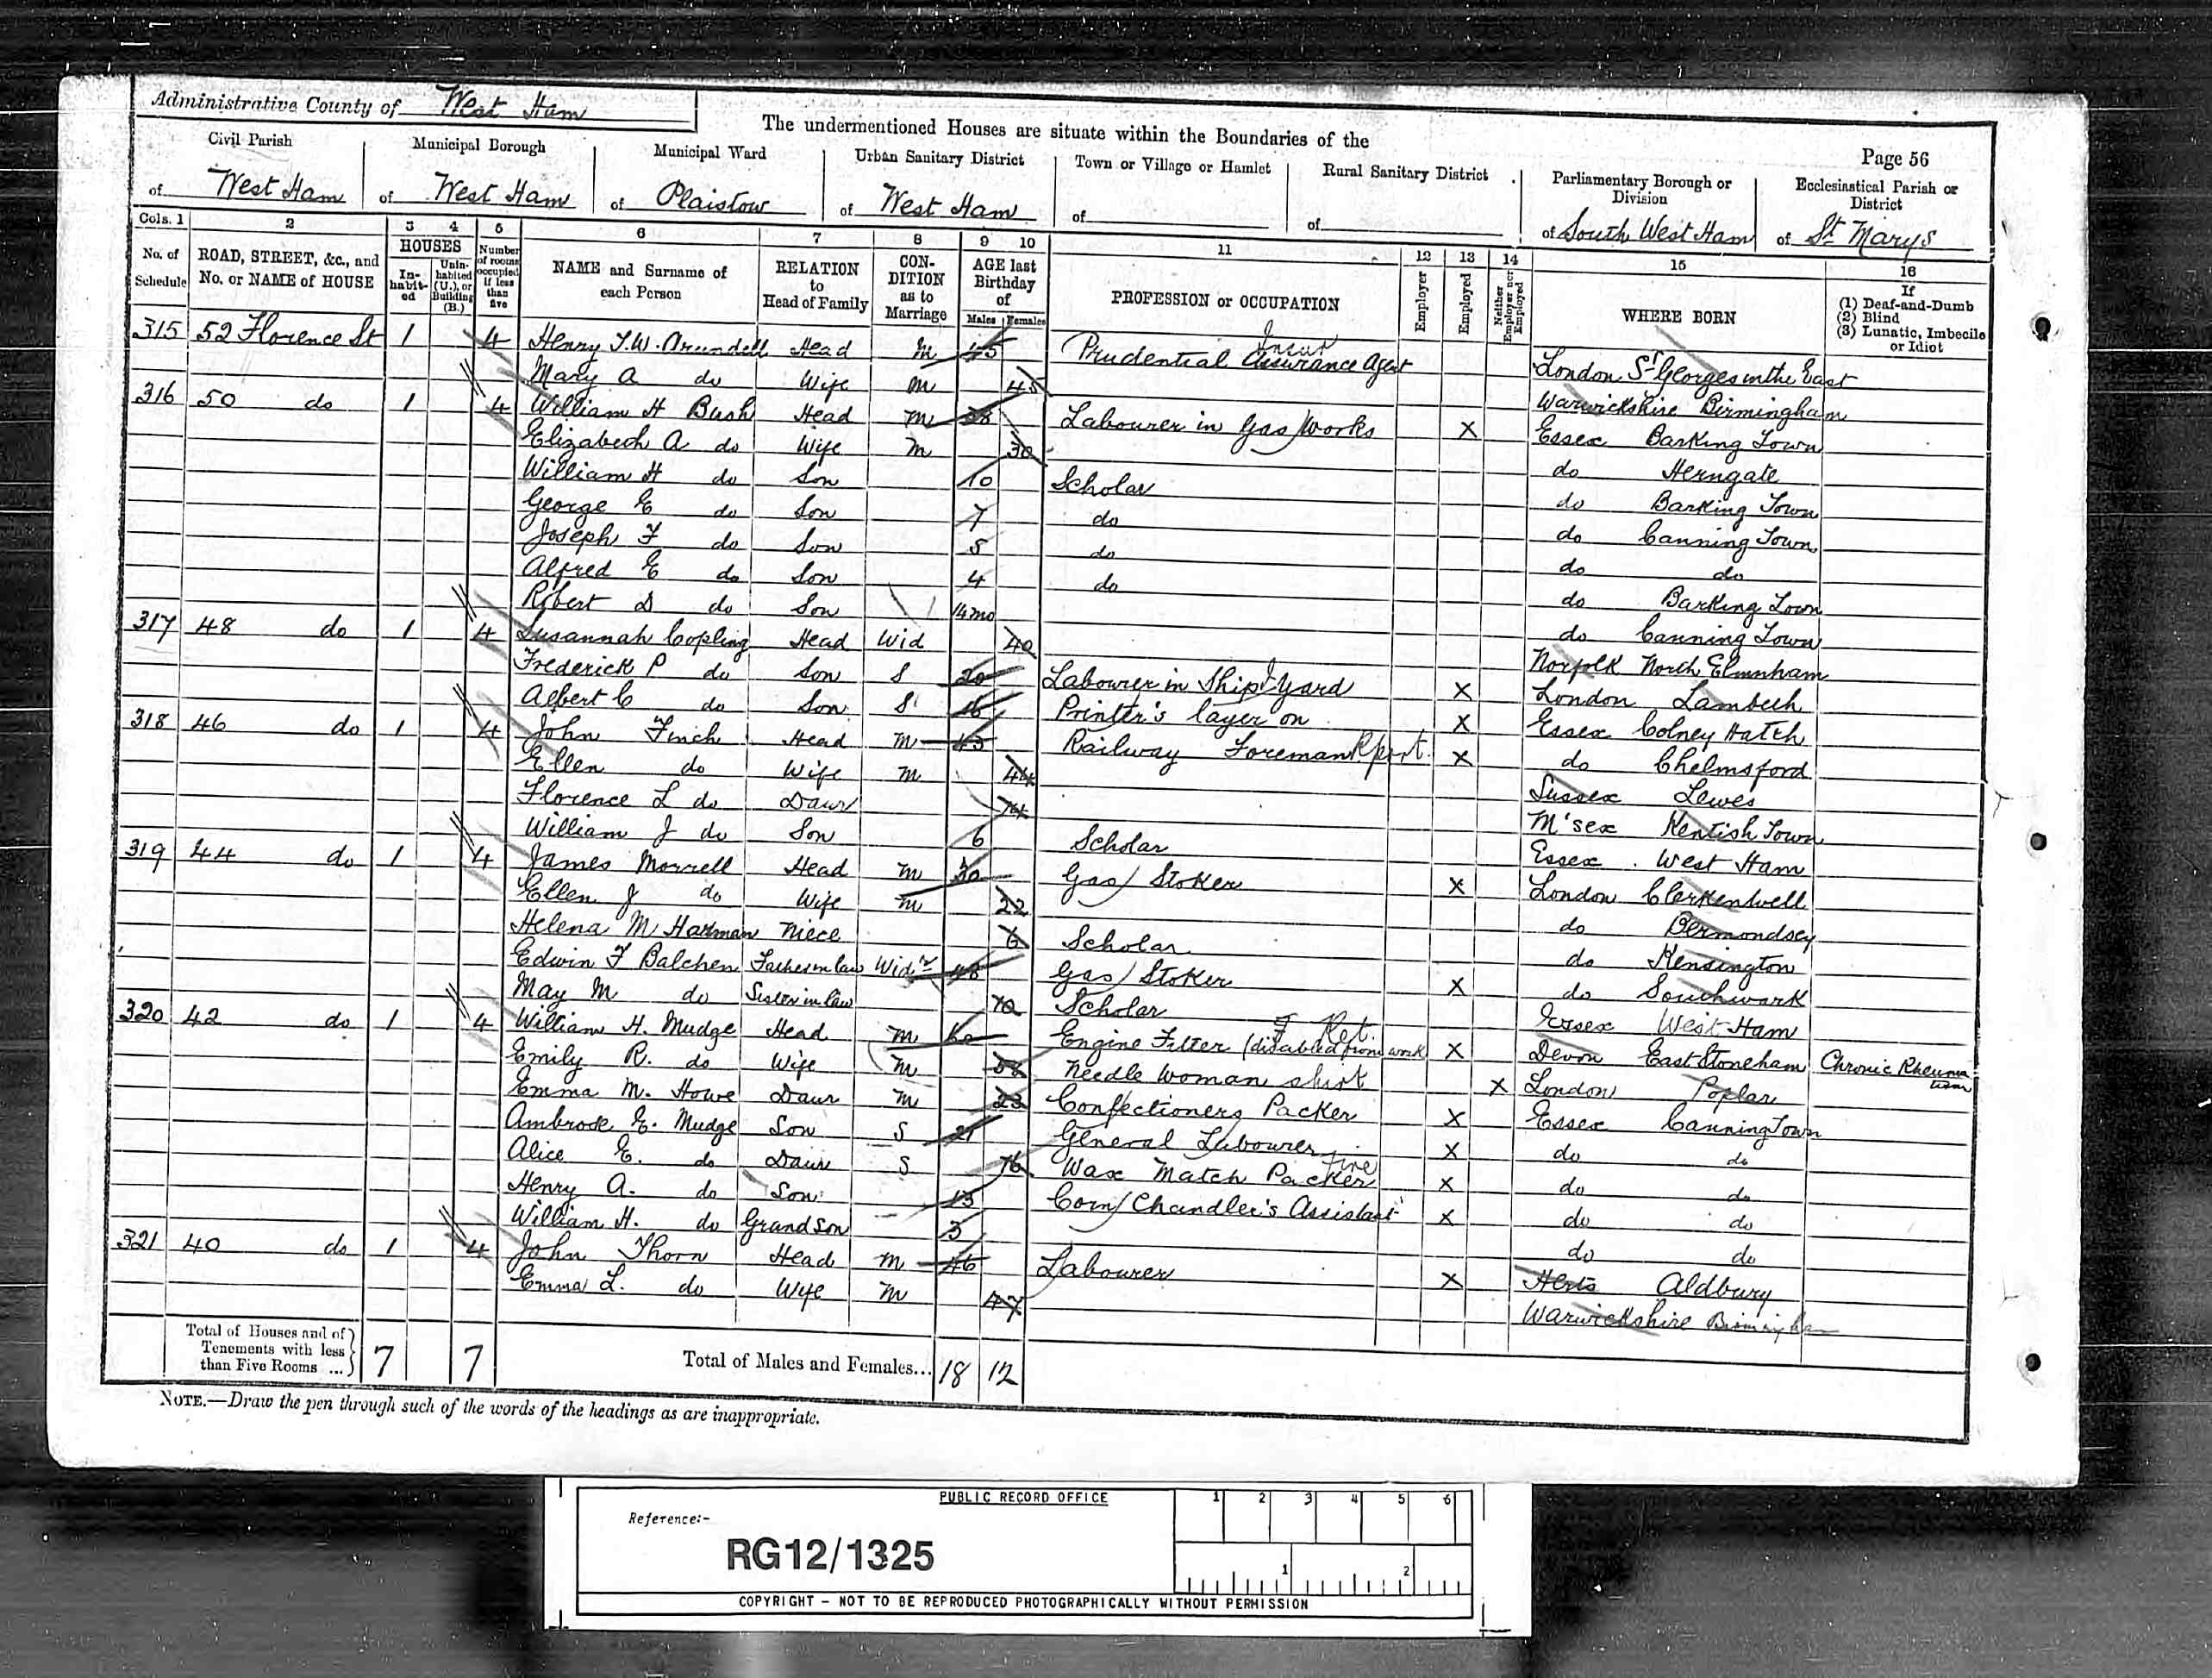 Administrative County of West Ham
The undermentioned Houses are situate within the Boundaries of the
Page 56
Civil Parish of West Ham
Municipal Borough of West Ham
Municipal Ward of Plaistow
Urban Sanitary District of West Ham
Town or Village or Hamlet of
Rural Sanitary District of
Parliamentary Borough or Division of South West Ham
Ecclesiastical Parish or District of St Marys
Cols. 1 2 3 4 5 6 7 8 9 10 11 12 13 14 15 16
No. of Schedule
ROAD, STREET, &c., and No. or NAME of HOUSE
HOUSES
In-habit-ed
Unin-habited (U.), or Building (B.)
Number of rooms occupied if less than five
NAME and Surname of each Person
RELATION to Head of Family
CON-DITION as to Marriage
AGE last Birthday of
Males Females
PROFESSION or OCCUPATION
Employer
Employed
Neither Employer nor Employed
WHERE BORN
If
(1) Deaf-and-Dumb
(2) Blind
(3) Lunatic, Imbecile or Idiot
315 52 Florence St 1 4 Henry T.W. Arundell Head M 45 Prudential Assurance Agent Insur London St Georges in the East
Mary A do Wife M 45 Warwickshire Birmingham
316 50 do 1 4 William H Bush Head M 38 Labourer in Gas Works X Essex Barking Town
Elizabeth A do Wife M 30 do Herngate
William H do Son 10 Scholar do Barking Town
George E do Son 7 do do Canning Town
Joseph F do Son 5 do do do
Alfred E do Son 4 do do Barking Town
Robert D do Son 14 mo do Canning Town
317 48 do 1 4 Susannah Copling Head Wid 40 Norfolk North Elmnham
Frederick P do Son S 20 Labourer in Ship Yard X London Lambeth
Albert C do Son S 16 Printer's layer on X Essex Colney Hatch
318 46 do 1 4 John Finch Head M 43 Railway Foreman X do Chelmsford
Ellen do Wife M 44 Sussex Lewes
Florence L do Daur 14 M'sex Kentish Town
William J do Son 6 Scholar Essex West Ham
319 44 do 1 4 James Morrell Head M 30 Gas Stoker X London Clerkenwell
Ellen J do Wife M 22 do Bermondsey
Helena M Harman Niece 6 Scholar do Kensington
Edwin F Balchen Father in law Widr 48 Gas Stoker X do Southwark
May M do Sister in law 10 Scholar Essex West Ham
320 42 do 1 4 William H. Mudge Head M 60 Engine Fitter (disabled from work Ret. X Devon East Stoneham Chronic Rheumatism
Emily R. do Wife M 58 Needle Woman shirt X London Poplar
Emma M. Howe Daur M 23 Confectioners Packer X Essex Canning Town
Ambrose E. Mudge Son S 21 General Labourer X do do
Alice E. do Daur S 16 Wax Match Packer X do do
Henry A. do Son 13 Corn Chandler's Assistant X do do
William H. do Grandson 3 do do
321 40 do 1 4 John Thorn Head M 46 Labourer X Herts Aldbury
Emma L. do Wife M 47 Warwickshire Birmingham
Total of Houses and of Tenements with less than Five Rooms ... 7 7
Total of Males and Females... 18 12
NOTE.—Draw the pen through such of the words of the headings as are inappropriate.
PUBLIC RECORD OFFICE
1 2 3 4 5 6
Reference:-
RG12/1325
1 2
COPYRIGHT - NOT TO BE REPRODUCED PHOTOGRAPHICALLY WITHOUT PERMISSION